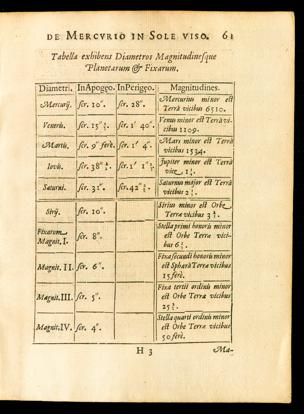 DE MERCVRIO IN SOLE VISO. 61
Tabella exhibens Diametros Magnitudinesque
Planetarum & Fixarum.
Diametri. InApogeo. InPerigeo. Magnitudines.
Mercurij. scr. 10". scr. 28". Mercurius minor est
Terrâ vicibus 6510.
Veneris. scr. 15" scr. 1' 40". Venus minor est Terrâ vi-
cibus 1109.
Martis. scr. 9" ferè. scr. 1' 4". Mars minor est Terrâ
vicibus 1534.
Iovis. scr. 38" scr. 1' 1" Jupiter minor est Terrâ
vice 1
Saturni. scr. 31". scr. 42" Saturnus major est Terrâ
vicibus 2
Sirij. scr. 10". Sirius minor est Orbe
Terræ vicibus 3
Fixarum
Magnit. I. scr. 8". Stella primi honoris minor
est Orbe Terræ vici-
bus 6
Magnit. II. scr. 6". Fixa secundi honoris minor
est Sphærâ Terræ vicibus
15 ferè.
Magnit. III. scr. 5". Fixa tertii ordinis minor
est Orbe Terræ vicibus
25
Magnit. IV. scr. 4". Stella quarti ordinis minor
est Orbe Terræ vicibus
50 ferè.
H 3 Ma-